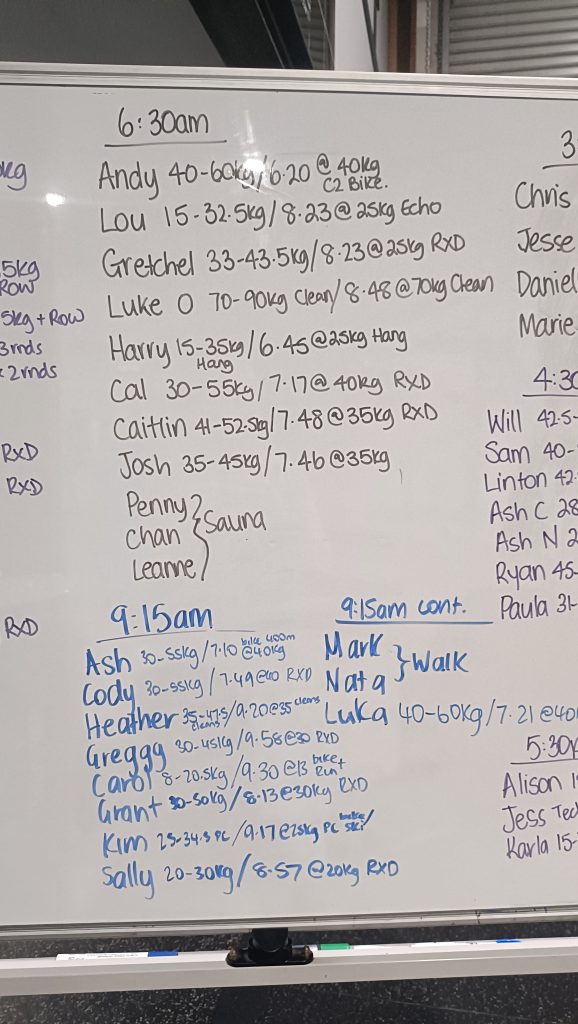 6:30am
Andy 40-60kg/6.20 @ 40kg
C2 Bike.
Lou 15-32.5kg/8.23@25kg Echo
Gretchel 33-43.5kg/8.23@25kg RXD
Luke O 70-90kg Clean/8.48@70kg Clean
Harry 15-35kg/6.45@25kg Hang
Hang
Cal 30-55kg/7.17@40kg RXD
Caitlin 41-52.5kg/7.48@35kg RXD
Josh 35-45kg/7.46@35kg
Penny
Chan } Sauna
Leanne
9:15am
Ash 30-55kg/7.10 bike 400m
@40kg
Cody 30-55kg/7.49@40 RXD
Heather 35-47.5/9.20@35 cleans
cleans
Greggg 30-45kg/9.58@30 RXD
Carol 8-20.5kg/9.30@13 bike+
Run
Grant 30-50kg/8.13@30kg RXD
Kim 25-34.5 PC/9.17@25kg PC bike/
ski
Sally 20-30kg/8.57@20kg RXD
9:15am cont.
Mark
} Walk
Nata
Luka 40-60kg/7.21@40
kg
.5kg
ROW
5kg + ROW
3rnds
2rnds
RXD
RXD
RXD
3
Chris
Jesse
Daniel
Marie
4:30
Will 42.5-
Sam 40-
Linton 42.
Ash C 28
Ash N 2
Ryan 45-
Paula 31-
5:30
Alison 1
Jess Tec
Karla 15-